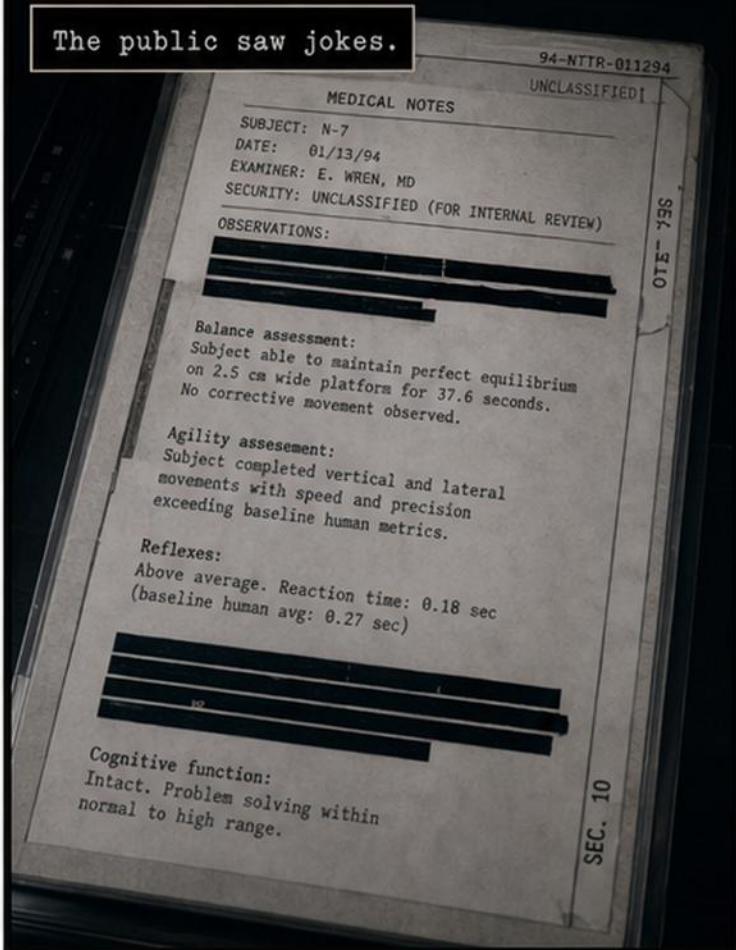 The public saw jokes.
94-NTTR-011294
UNCLASSIFIED
MEDICAL NOTES
SUBJECT: N-7
DATE: 01/13/94
EXAMINER: E. WREN, MD
SECURITY: UNCLASSIFIED (FOR INTERNAL REVIEW)
OBSERVATIONS:
Balance assessment:
Subject able to maintain perfect equilibrium
on 2.5 cm wide platform for 37.6 seconds.
No corrective movement observed.
Agility assesement:
Subject completed vertical and lateral
movements with speed and precision
exceeding baseline human metrics.
Reflexes:
Above average. Reaction time: 0.18 sec
(baseline human avg: 0.27 sec)
Cognitive function:
Intact. Problem solving within
normal to high range.
SEC. 10